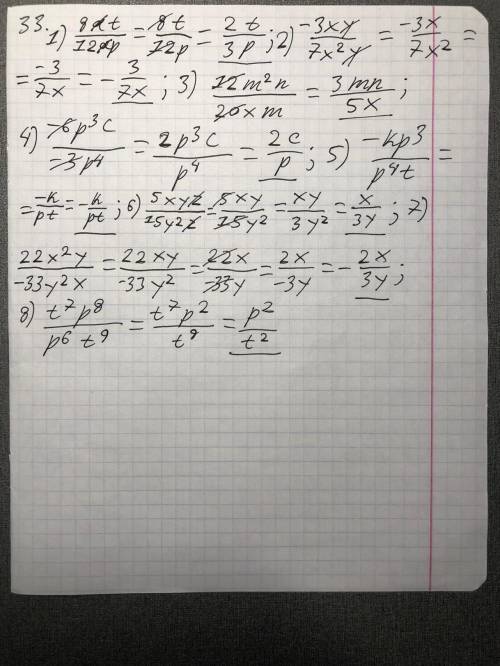 33. 1) 8xt/12xp = 8t/12p = 2t/3p; 2) -3xy/7x²y = -3x/7x² =
= -3/7x = - 3/7x; 3) 12m²n/20xm = 3mn/5x;
4) -6p³c/-3p⁴ = 2p³c/p⁴ = 2c/p; 5) -kp³/p⁴t =
= -k/pt = - k/pt; 6) 5xyz/15y²z = 5xy/15y² = xy/3y² = x/3y; 7)
22x²y/-33y²x = 22xy/-33y² = 22x/-33y = 2x/-3y = - 2x/3y;
8) t⁷p⁸/p⁶t⁹ = t⁷p²/t⁹ = p²/t²